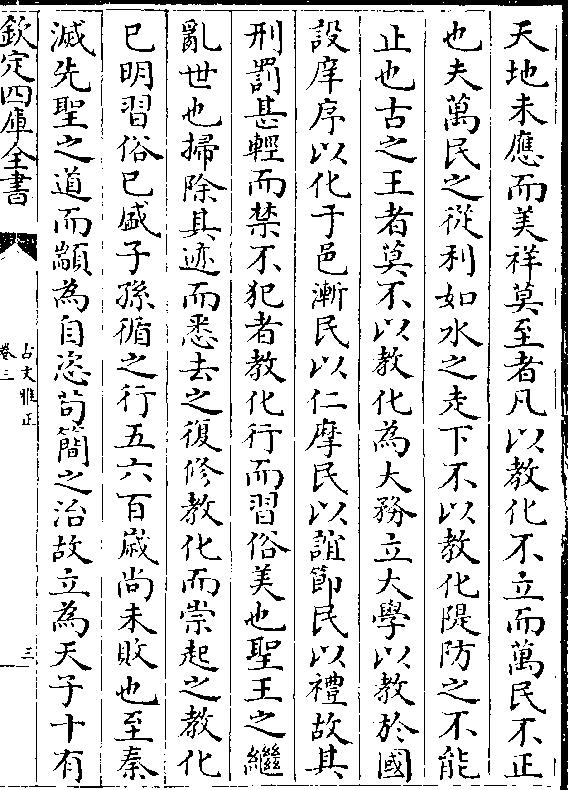 天地未應而美祥莫至者凡以教化不立而萬民不正
也夫萬民之從利如水之走下不以教化隄防之不能
止也古之王者莫不以教化為大務立大學以教於國
設庠序以化于邑漸民以仁摩民以誼節民以禮故其
刑罰甚輕而禁不犯者教化行而習俗美也聖王之繼
亂世也掃除其迹而悉去之復修教化而崇起之教化
已明習俗已成子孫循之行五六百歲尚未敗也至秦
滅先聖之道而顓為自恣茍簡之治故立為天子十有
欽定四庫全書
古文雅正
卷三
三